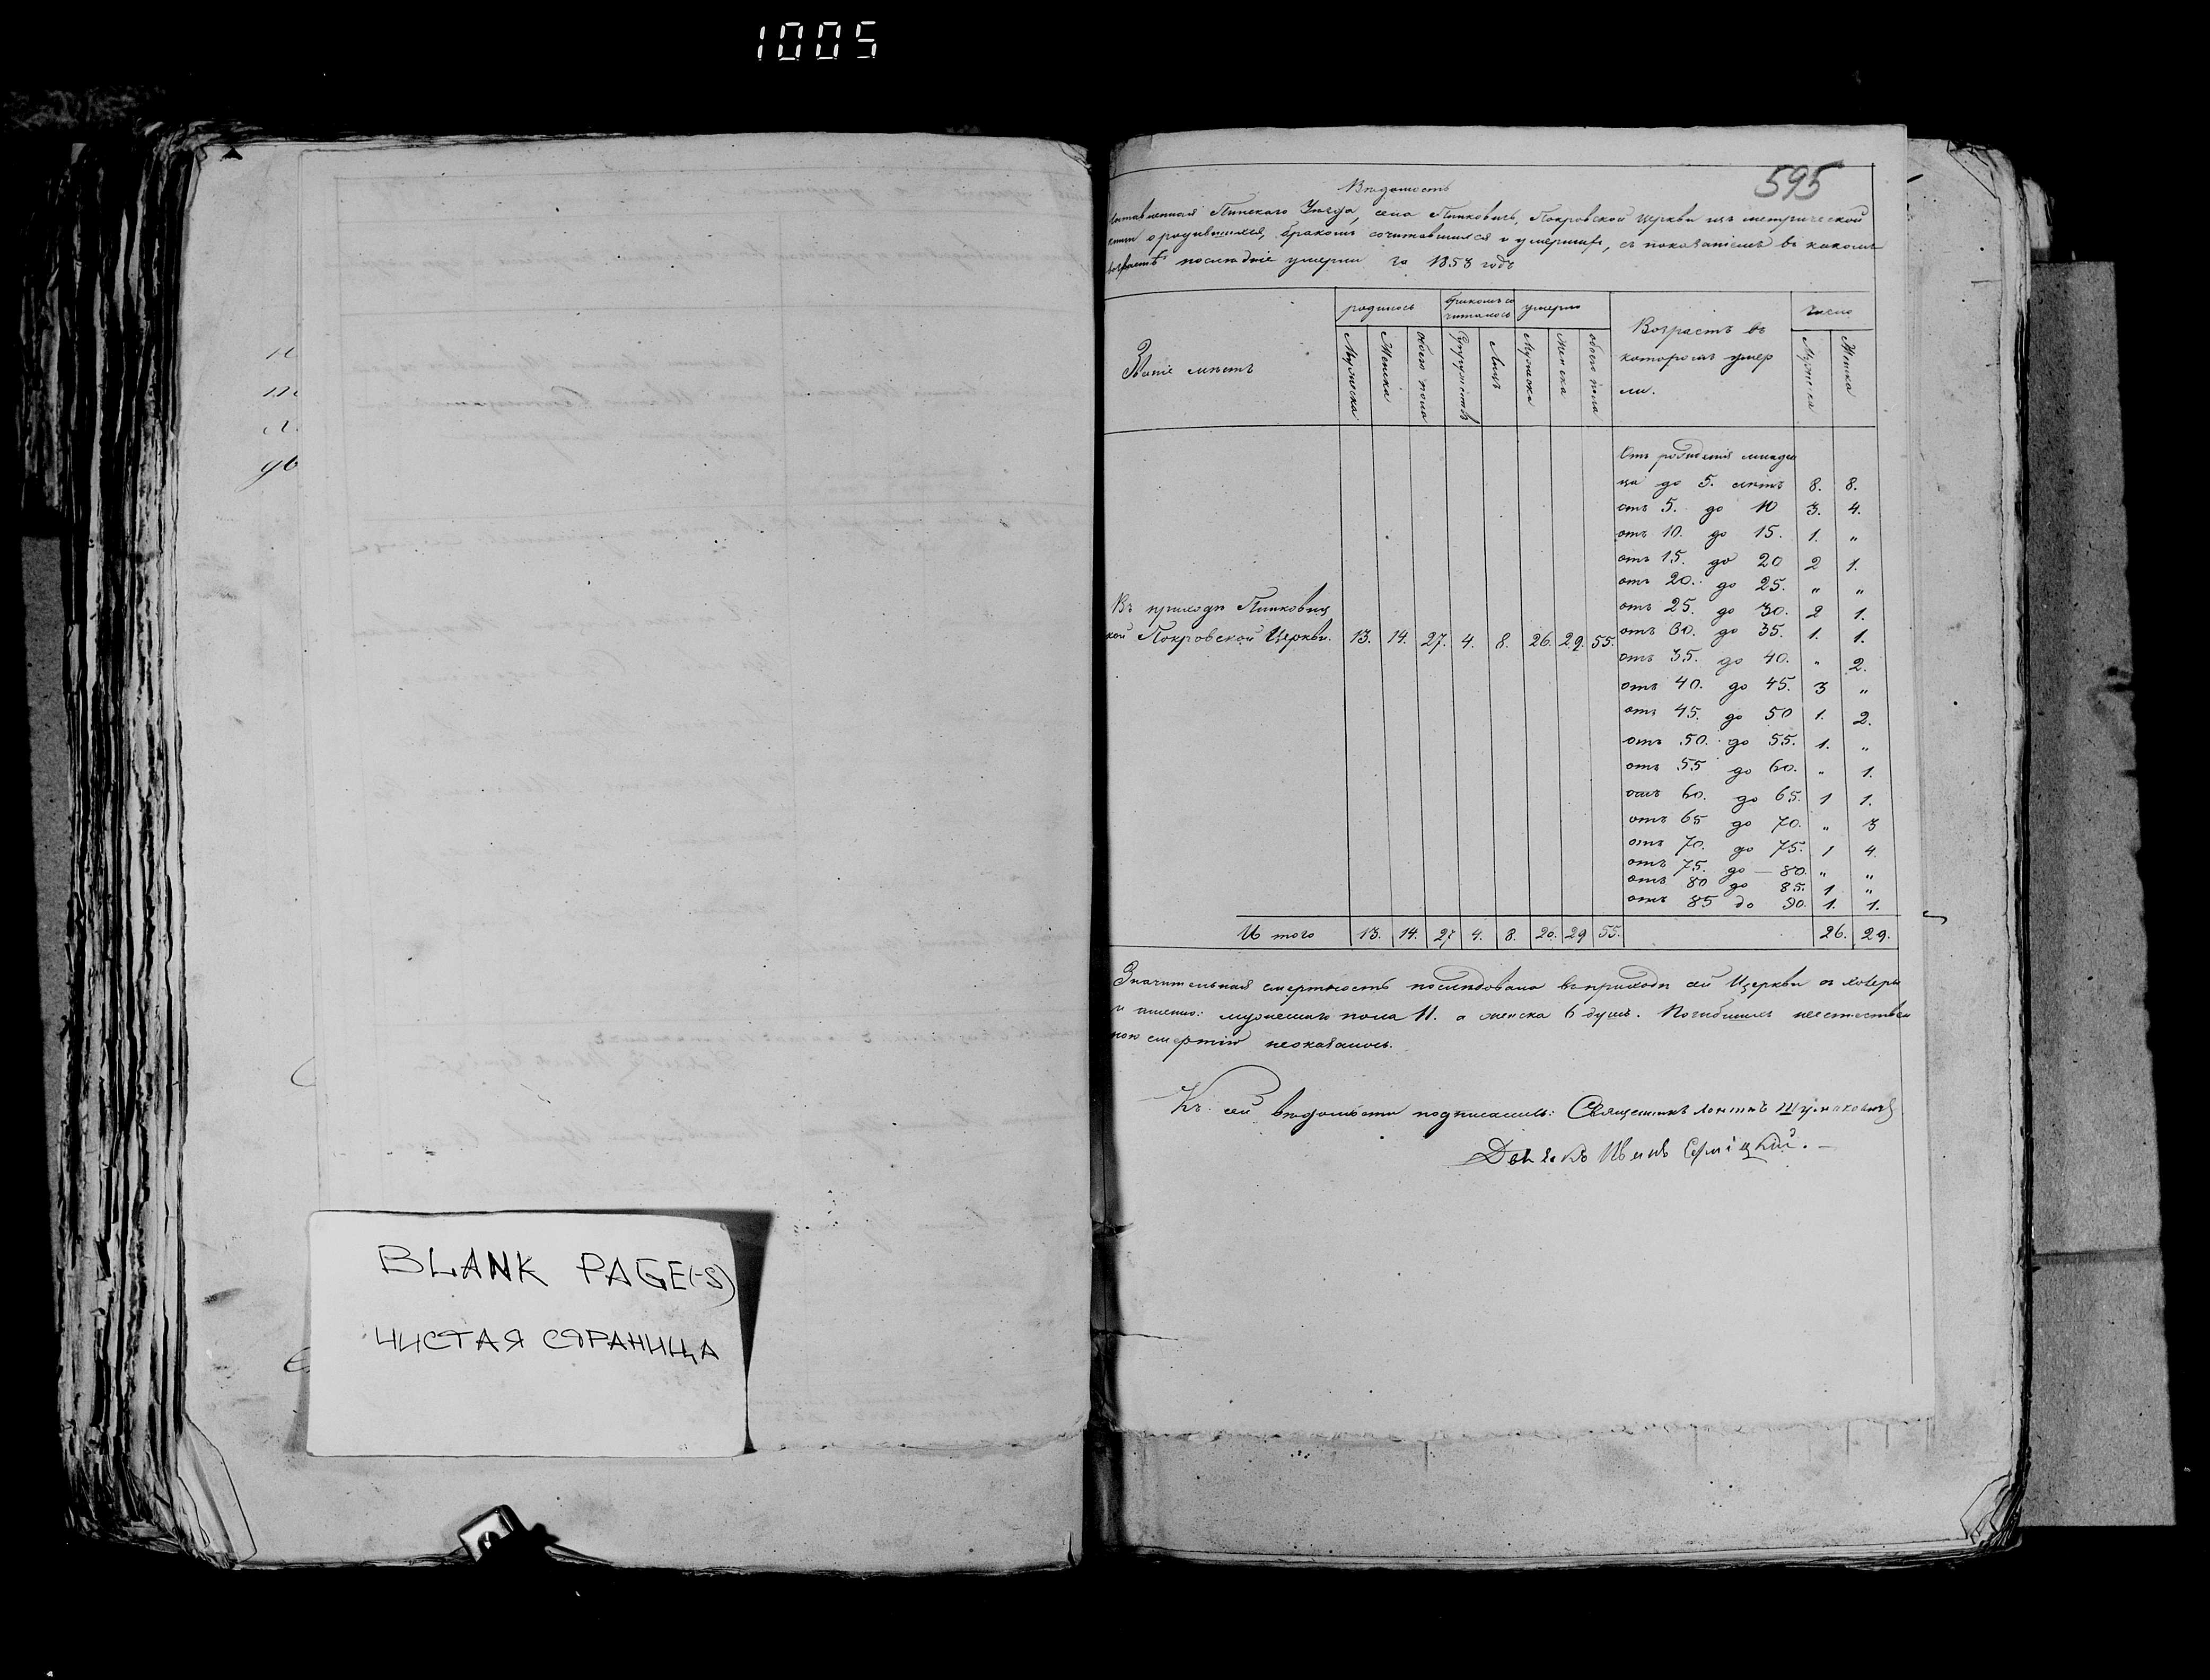 1005
595
Вѣдомость
составленная Пинскаго Уѣзда, села Пинковичь, Покровской церкви изъ метрической
книги о родившихся, бракомъ сочитавшихся и умершихъ, съ показаніемъ въ какомъ
возрастѣ последніе умерли за 1858 годъ
Званіе мѣстъ
родилось
бракомъ со
читалось
умерло
Возрастъ въ
которомъ умер
ли.
число
Мужеска
Женска
обоего пола
Супружествъ
Лицъ
Мужеска
Женска
обоего пола
Мужеска
Женска
Отъ рожденія младен
ца до 5. лѣтъ 8. 8.
отъ 5. до 10 3. 4.
отъ 10. до 15. 1. „
отъ 15. до 20 2 1.
отъ 20. до 25. „ „
отъ 25. до 30. 2 1.
отъ 30. до 35. 1. 1.
отъ 35. до 40. „ 2.
отъ 40. до 45. 3 „
отъ 45. до 50 1. 2.
отъ 50. до 55. 1. „
отъ 55 до 60. „ 1.
отъ 60. до 65. 1 1.
отъ 65 до 70. „ 3
отъ 70. до 75. 1 4.
отъ 75. до — 80. „ „
отъ 80 до 85. 1 „
отъ 85 до 90. 1. 1.
Въ приходѣ Пинковиц
кой Покровской Церкви. 13. 14. 27. 4. 8. 26. 29. 55.
И того 13. 14. 27 4. 8. 26. 29 55. 26. 29.
Значительная смертность последовала въ приходѣ сей Церкви отъ холеры
и именно: мужеска пола 11. а женска 6 душъ. Погибшихъ неестествен
ною смертію неоказалось.
Къ сей вѣдомости подписались: Священникъ Шумаковичъ
Дьячекъ Иванъ
BLANK PAGE(-S)
ЧИСТАЯ СТРАНИЦА